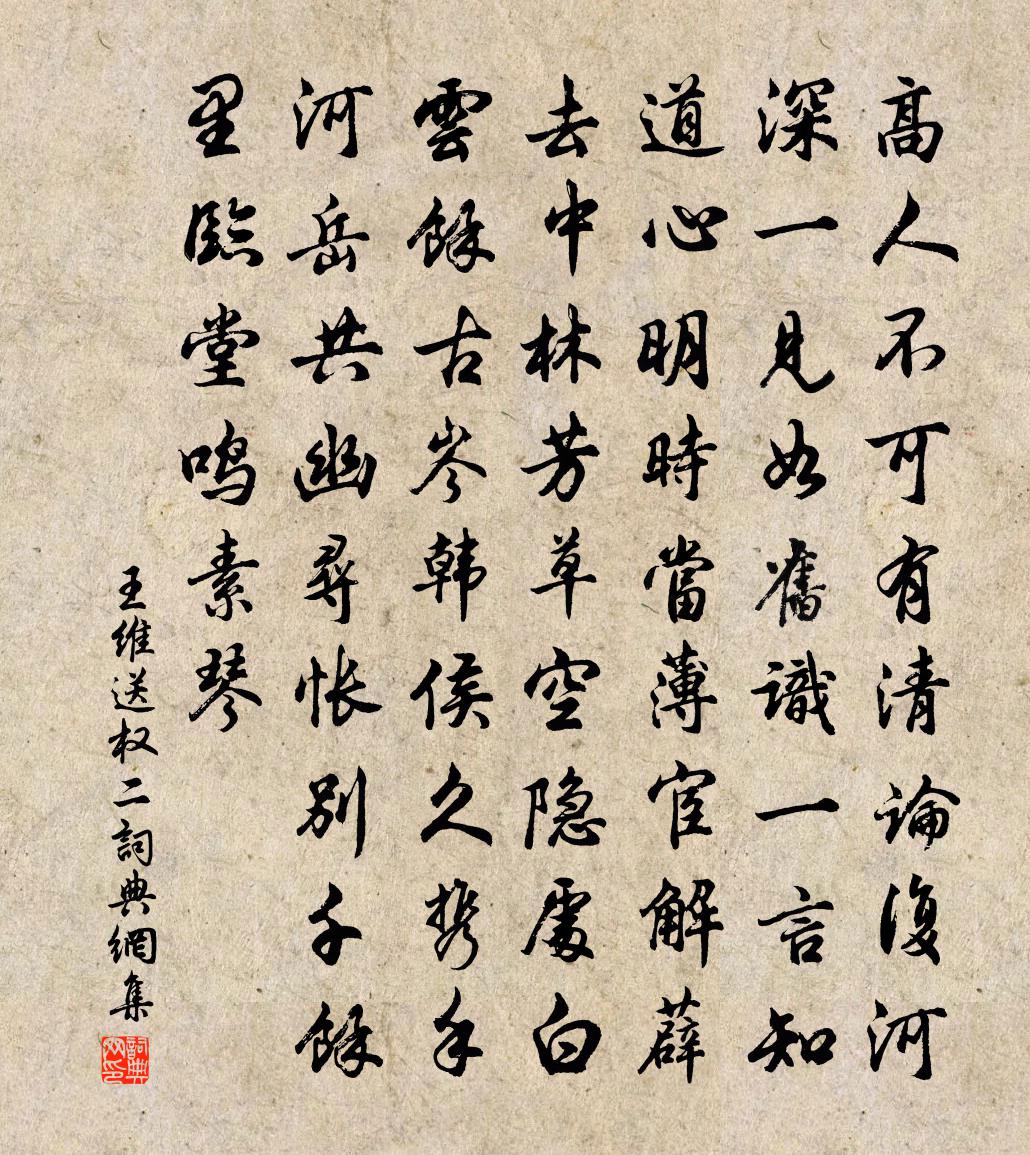 高人不可有清論復河
深一見如舊識一言知
道心明時當薄宦解薜
去中林芳草空隐處白
雲餘古岑韩侯久携手
河岳共幽尋悵别千餘
里臨堂鳴素琴
王維送权二詞典網集
詞典网印